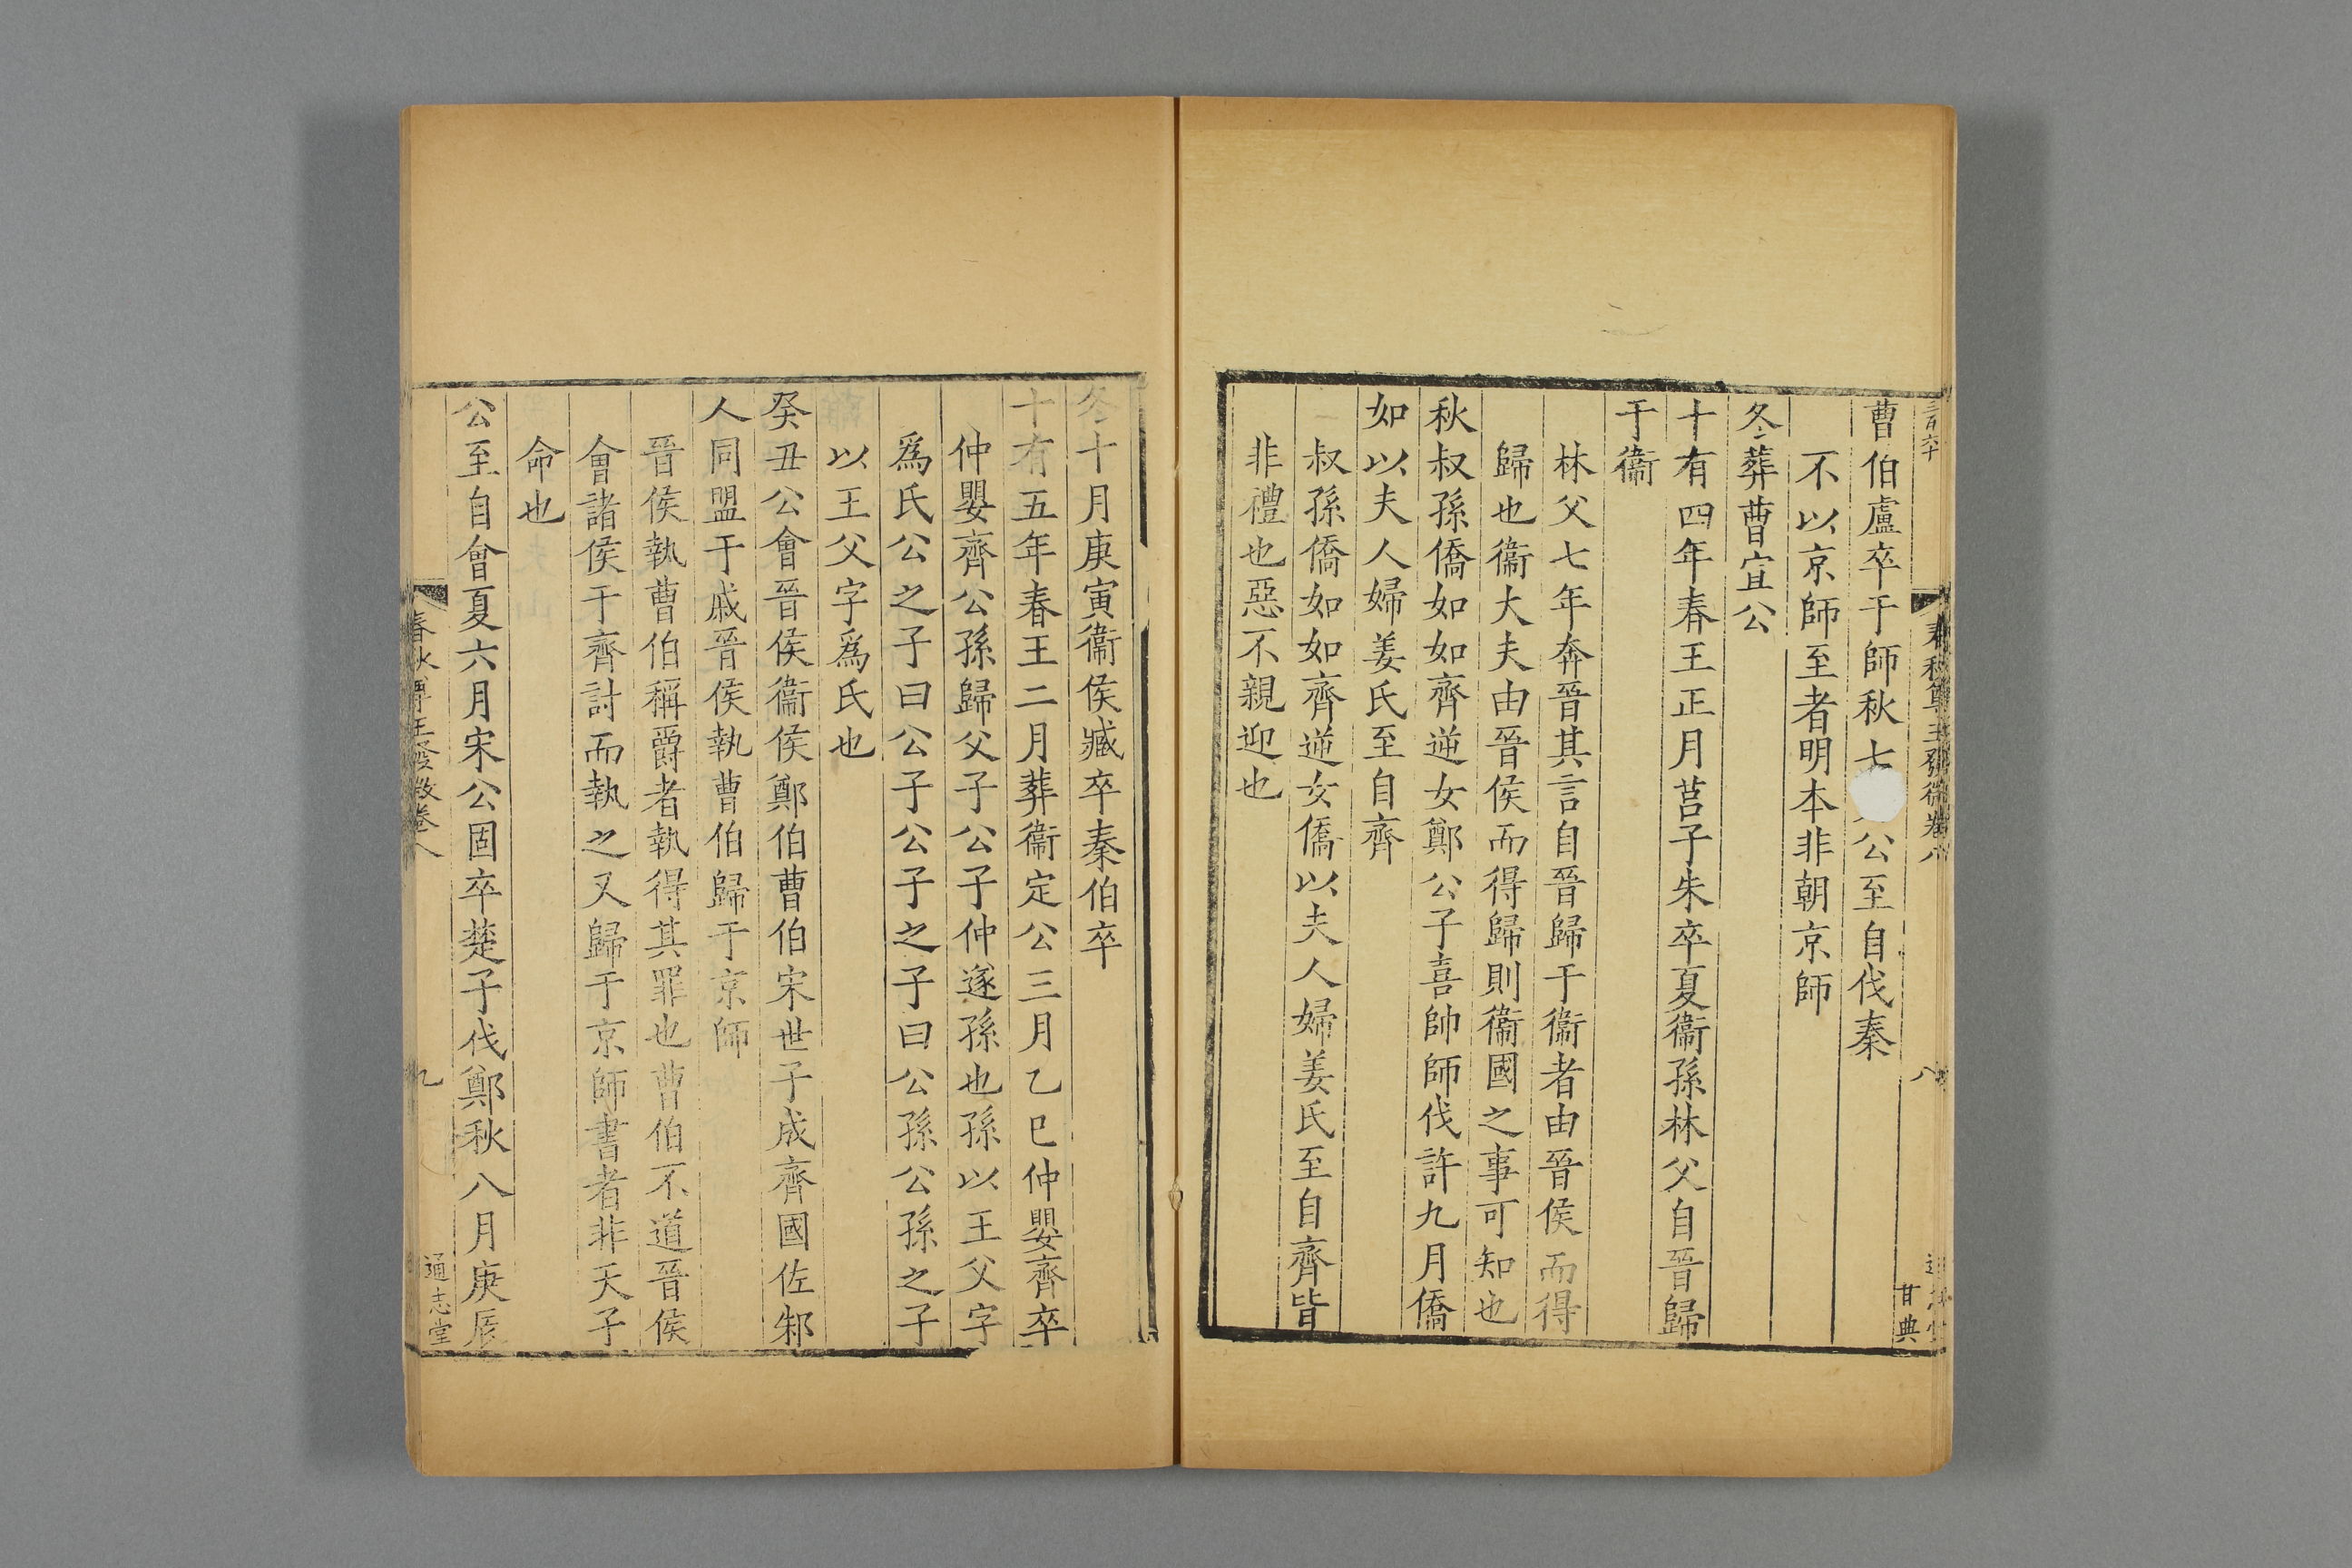 曹伯盧卒于師秋七公至自伐秦
不以京師至者明本非朝京師
冬葬曹宣公
十有四年春王正月莒子朱卒夏衞孫林父自晉歸
于衞
林父七年奔晉其言自晉歸于衞者由晉侯而得
歸也衞大夫由晉侯而得歸則衞國之事可知也
秋叔孫僑如如齊逆女鄭公子喜帥師伐許九月僑
如以夫人婦姜氏至自齊
叔孫僑如如齊逆女僑以夫人婦姜氏至自齊皆
非禮也惡不親迎也
冬十月庚寅衞侯臧卒秦伯卒
十有五年春王二月葬衞定公三月乙巳仲嬰齊卒
仲嬰齊公孫歸父子公子仲遂孫也孫以王父字
爲氏公之子曰公子公子之子曰公孫公孫之子
以王父字爲氏也
癸丑公會晉侯衞侯鄭伯曹伯宋世子成齊國佐邾
人同盟于戚晉侯執曹伯歸于京師
晉侯執曹伯稱爵者執得其罪也曹伯不道晉侯
會諸侯于齊討而執之又歸于京師書者非天子
命也
公至自會夏六月宋公固卒楚子伐鄭秋八月庚辰
春秋尊王發微卷八
八
甘典
春秋尊王發微卷八
九
通志堂